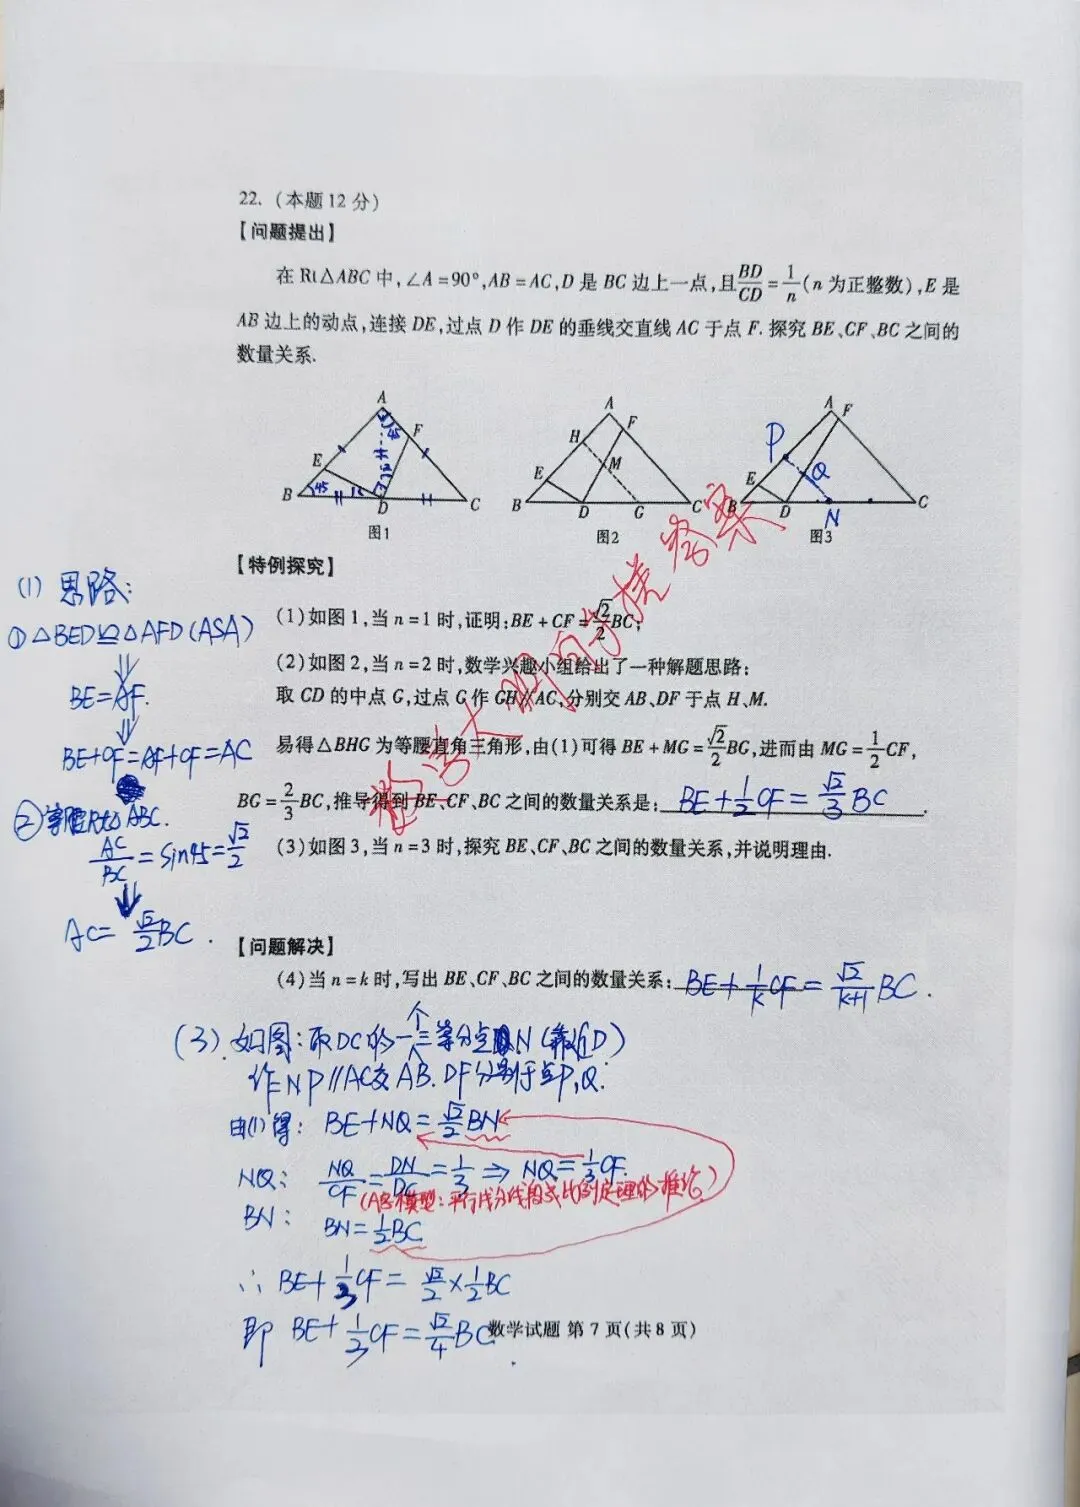 22. (本题12分)
【问题提出】
在 Rt△ABC 中,∠A=90°,AB=AC,D 是 BC 边上一点,且 BD/CD = 1/n (n 为正整数),E 是
AB 边上的动点,连接 DE,过点 D 作 DE 的垂线交直线 AC 于点 F. 探究 BE、CF、BC 之间的
数量关系.
A
F
E
45
45
1
2
3
B
D
C
图1
A
F
H
M
E
B
D
G
C
图2
A
F
P
Q
E
B
D
N
C
图3
【特例探究】
(1)如图1,当 n=1 时,证明:BE+CF=√2/2 BC;
(2)如图2,当 n=2 时,数学兴趣小组给出了一种解题思路:
取 CD 的中点 G,过点 G 作 GH∥AC,分别交 AB、DF 于点 H、M.
易得△BHG 为等腰直角三角形,由(1)可得 BE+MG=√2/2 BG,进而由 MG=1/2 CF,
BG=2/3 BC,推导得到 BE、CF、BC 之间的数量关系是: BE+1/2 CF=√2/3 BC .
(3)如图3,当 n=3 时,探究 BE、CF、BC 之间的数量关系,并说明理由.
【问题解决】
(4)当 n=k 时,写出 BE、CF、BC 之间的数量关系: BE+1/k CF=√2/(k+1) BC .
(1) 思路:
① △BED≌△AFD(ASA)
⇓
BE=AF.
⇓
BE+CF=AF+CF=AC
② 等腰Rt△ABC.
AC/BC = sin45=√2/2
⇓
AC=√2/2 BC .
(3). 如图:取DC的一个三等分点N(靠近D)
作NP∥AC交AB.DF分别于点P,Q.
由(1)得: BE+NQ=√2/2 BN
NQ: NQ/CF=DN/DC=1/3 ⇒ NQ=1/3 CF.
(A型模型:平行线分线段成比例定理的推论)
BN: BN=1/2 BC
∴ BE+1/3 CF= √2/2×1/2 BC
即 BE+1/3 CF=√2/4 BC .
数学试题 第7页(共8页)